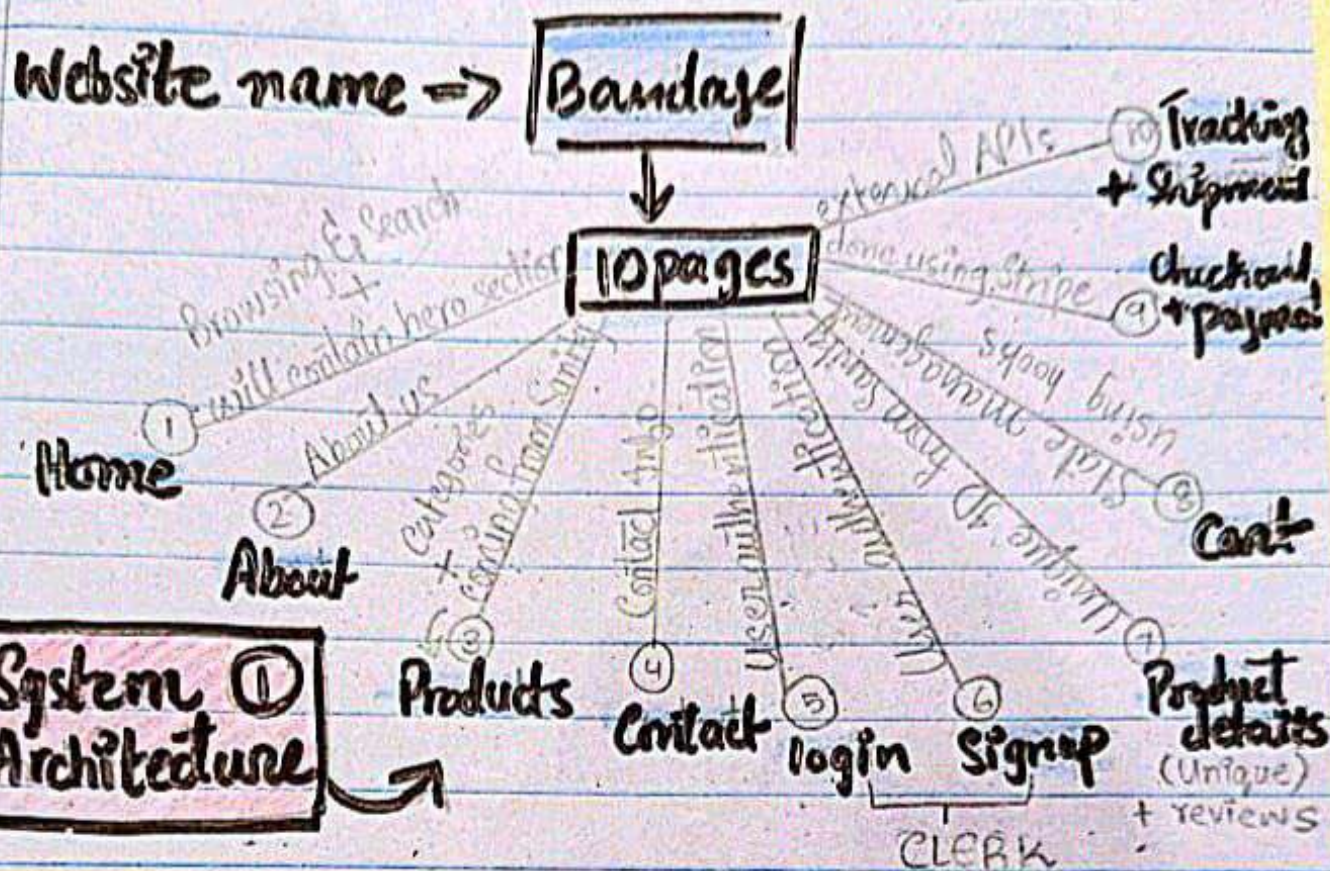 Website name => Bandage
10 pages
Browsing & Search
+
will contain hero section
1
Home
About us
2
About
Categories
+
coming from Sanity
3
Products
Contact info
4
Contact
User authentication
5
login
User authentication
6
Signup
CLERK
Unique ID from Sanity
7
Product
details
(Unique)
+ reviews
State management
using hooks
8
Cart
done using Stripe
9
+
external APIs
10
Tracking
+ Shipment
System 1
Architecture